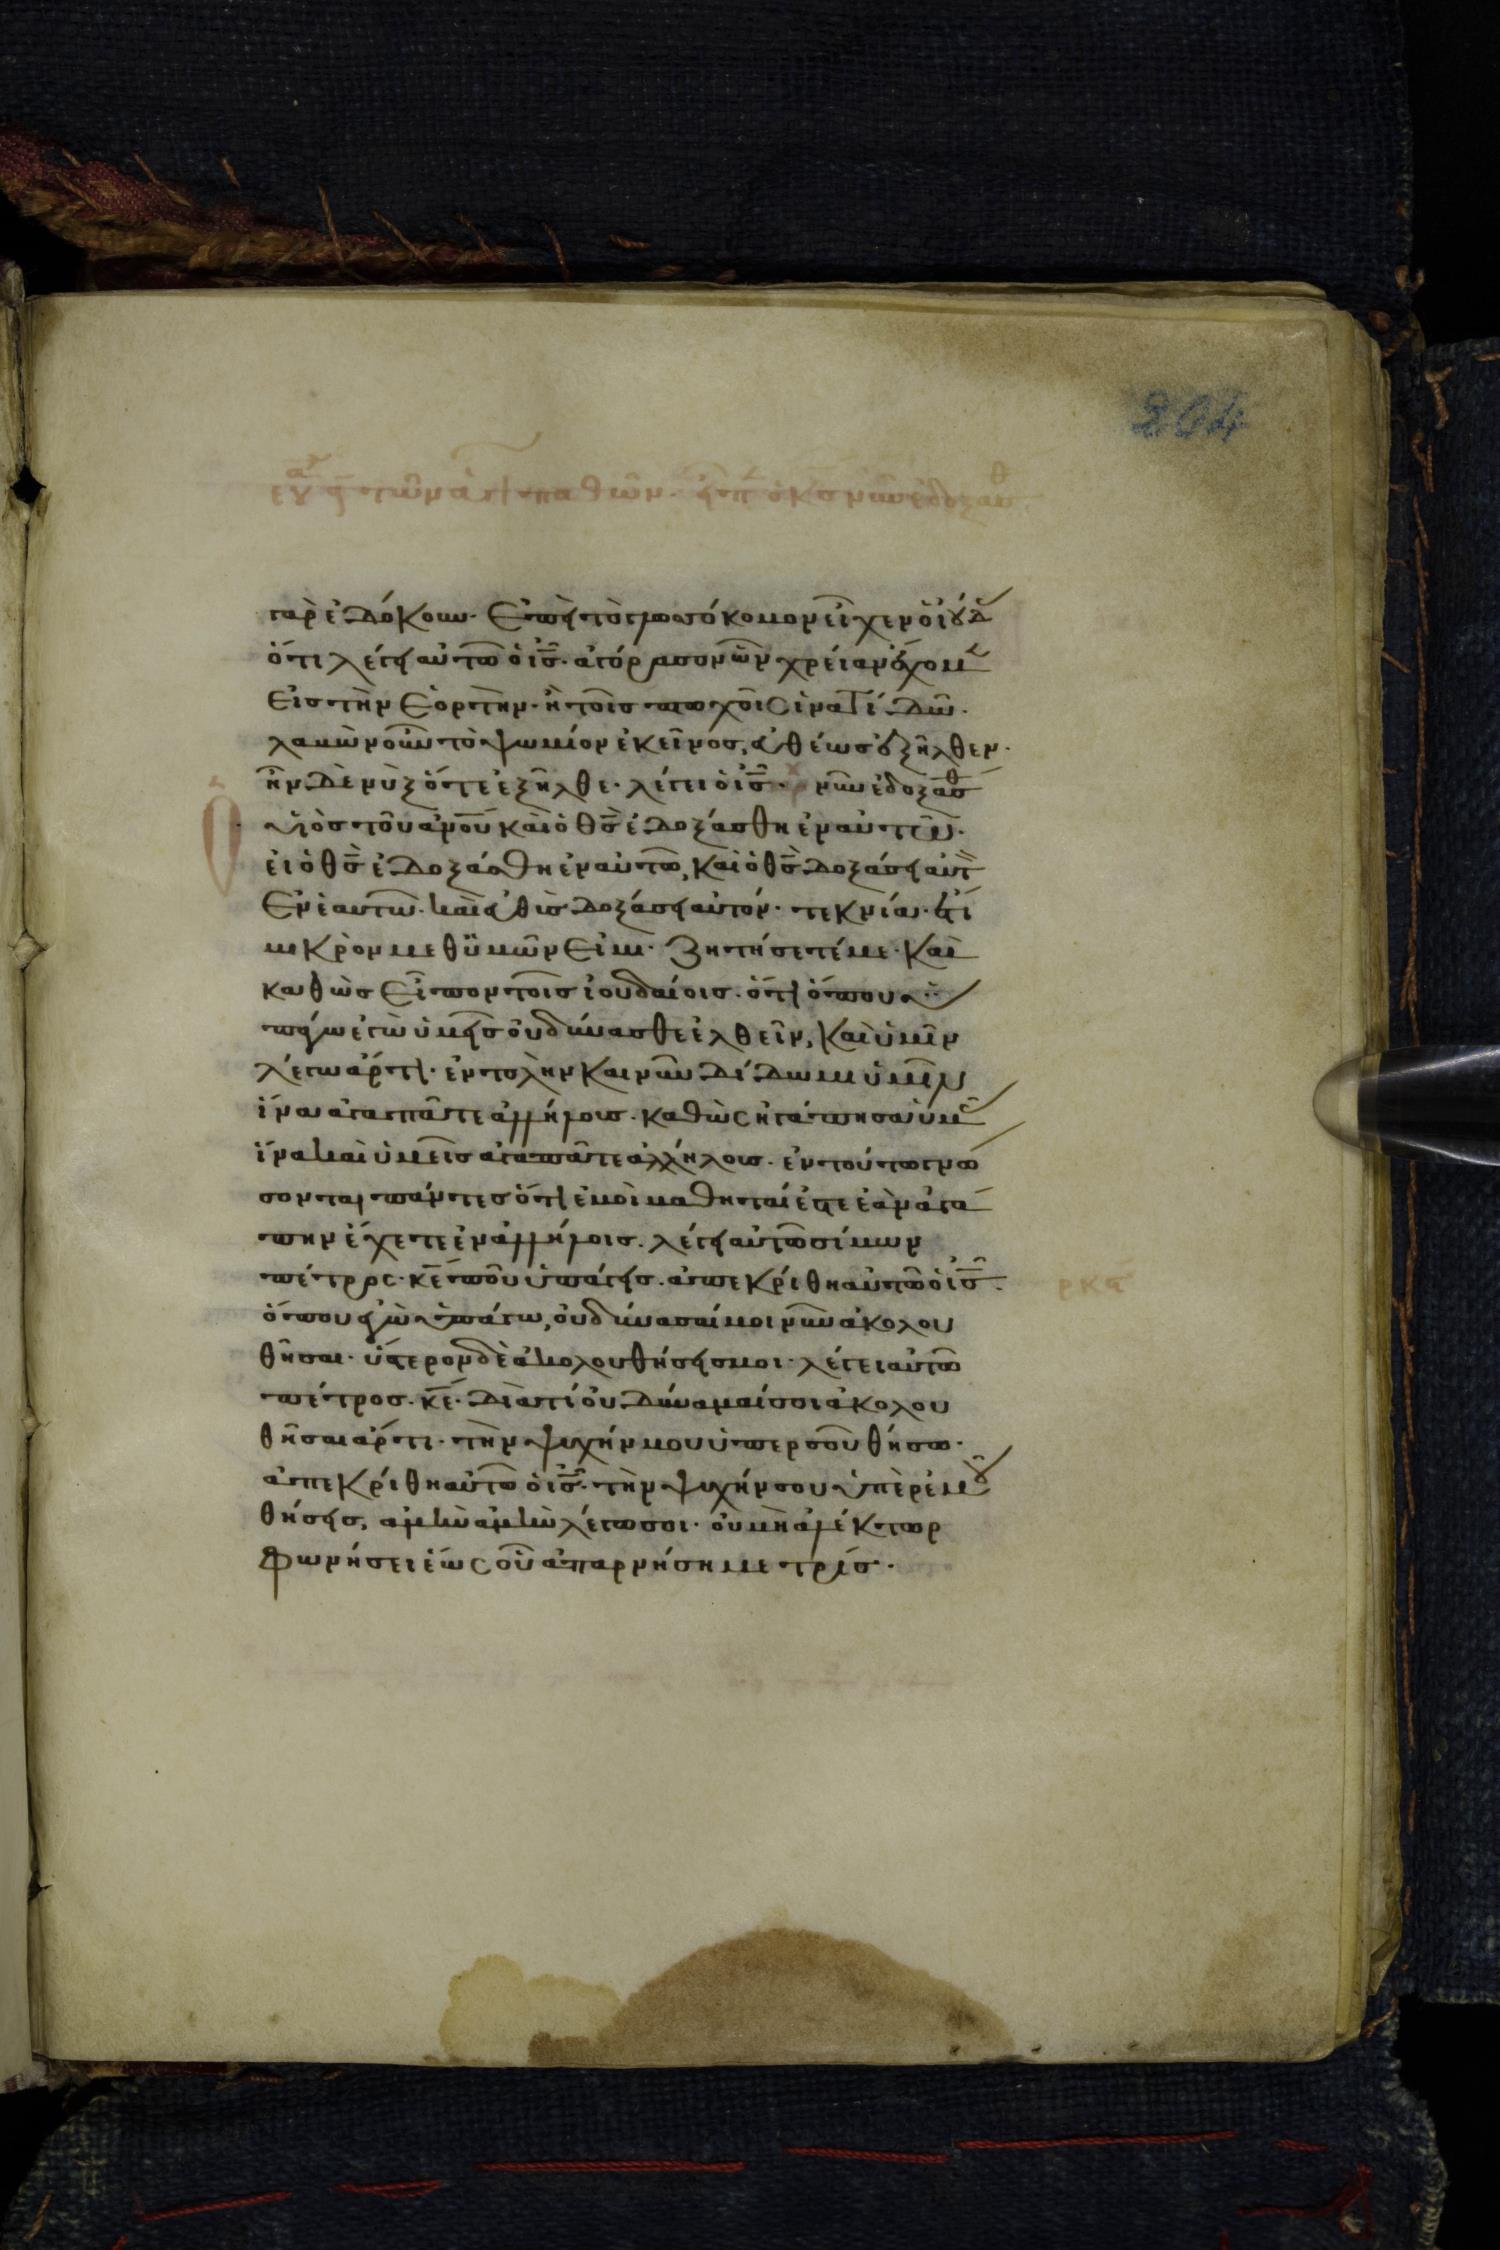 204
γὰρ ἐδόκουν· ἐπεὶ τὸ γλωσσόκομον εἶχεν ὁ ἰούδ
ὅτι λέγει αὐτῶ ὁ ις̅· ἀγόρασον ὧν χρείαν ἔχομ
εἰς τὴν ἑορτὴν· ἢ τοῖς πτωχοῖς ἵνα τί δῶ·
λαβὼν οὖν τὸ ψωμίον ἐκεῖνος, εὐθέως ἐξῆλθεν·
ἦν δὲ νὺξ ὅτε ἐξῆλθε· λέγει ὁ ις̅· νῦν ἐδοξάσθ
ὁ υἱὸς τοῦ ἀνου̅ καὶ ὁ θς̅ ἐδοξάσθη ἐν αὐτῶ·
εἰ ὁ θς̅ ἐδοξάσθη ἐν αὐτῶ, καὶ ὁ θς̅ δοξάσει αὐτ
ἐν ἑαυτῶ· καὶ εὐθὺς δοξάσει αὐτόν· τεκνία· ἔτι
μικρὸν μεθ ὑμῶν εἰμι· ζητήσετέ με· καὶ
καθὼς εἶπον τοῖς ἰουδαίοις· ὅτι ὅπου ὑ
πάγω ἐγὼ ὑμεῖς οὐ δύνασθε ἐλθεῖν, καὶ ὑμῖν
λέγω ἄρτι· ἐντολὴν καινὴν δίδωμι ὑμῖν
ἵνα ἀγαπᾶτε ἀλλήλους· καθὼς ἠγάπησα ὑμ
ἵνα καὶ ὑμεῖς ἀγαπᾶτε ἀλλήλους· ἐν τούτω γνώ
σονται πάντες ὅτι ἐμοὶ μαθηταί ἐστε ἐὰν ἀγά
πην ἔχετε ἐν ἀλλήλοις· λέγει αὐτῶ σίμων
πέτρος· κε̅ ποῦ ὑπάγεις· ἀπεκρίθη αὐτῶ ὁ ις̅·
ρκϛ
ὅπου ἐγὼ ὑπάγω, οὐ δύνασαί μοι νῦν ἀκολου
θῆσαι· ὕστερον δὲ ἀκολουθήσεις μοι· λέγει αὐτῶ
πέτρος· κε̅· διατί οὐ δύναμαί σοι ἀκολου
θῆσαι ἄρτι· τὴν ψυχήν μου ὑπερ σοῦ θήσω·
ἀπεκρίθη αὐτῶ ὁ ις̅· τὴν ψυχήν σου ὑπὲρ ἐμοῦ
θήσεις, ἀμὴν ἀμὴν λέγω σοι· οὐ μὴ ἀλέκτωρ
φωνήσει ἕως οὗ ἀπαρνήση με τρίς·